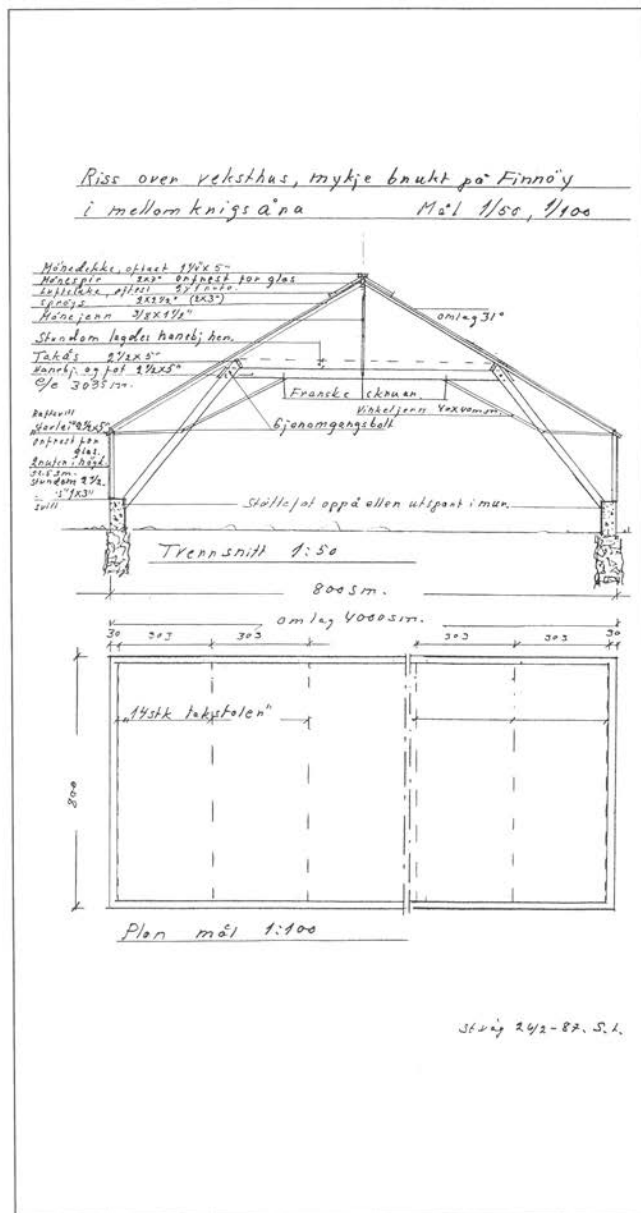 Riss over veksthus, mykje brukt på Finnöy
i mellomknigsåra Mål 1/50, 1/100
Mönedekke, oftast 1½"x5"
Mönespir 2x7" onfrest for glas
Lufteluke, oftest
Sprogs 2x2½" (2x3")
Mönejenn 3/8x1½"
Stundom lagdes hanebj. hen.
Takås 2½x5"
Hanebj. og fot 2½x5"
c/c 303sm.
omlag 31°
Franske skruar.
Vinkeljenn 40x40mm.
Gjenomgangsbolt
onfrest for
glas.
2 ruter i högd.
stundom 2½
svill
Støttefot oppå eller utspart i mur.
Tvennsnitt 1:50
800sm.
omlag 4000sm.
30 303 303 303 303 30
"14stk takstolen"
800
Plan mål 1:100
24/2-87. S.L.